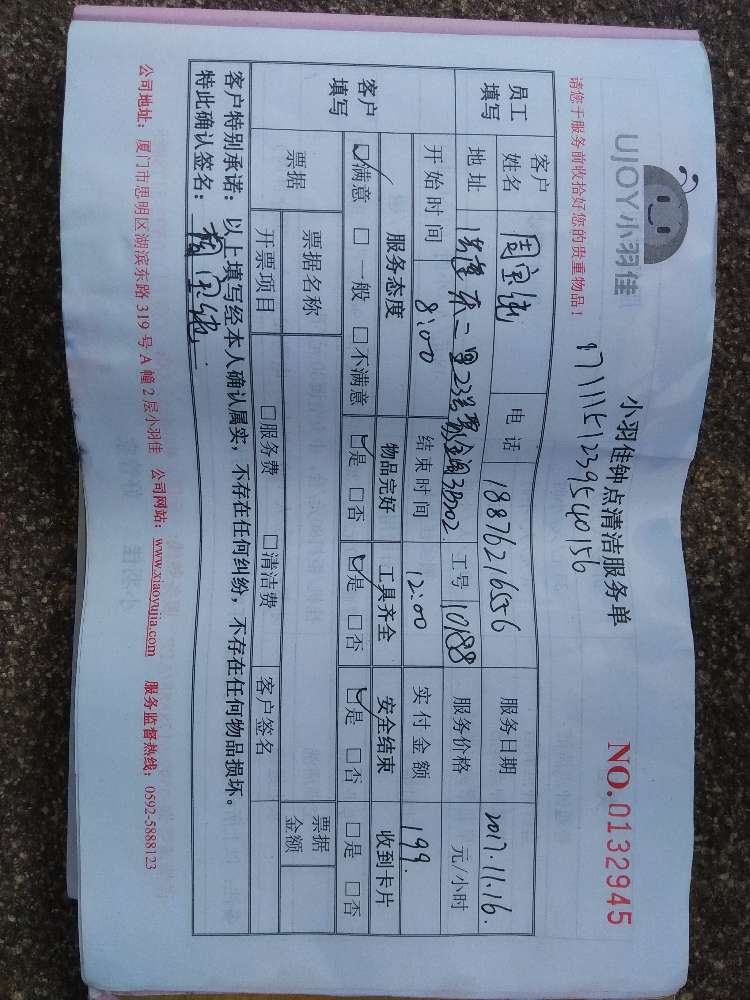 UJOY小羽佳
小羽佳钟点清洁服务单
NO.0132945
请您于服务前收拾好您的贵重物品！
员工填写 客户姓名 电话 18876216556 服务日期 2017.11.16.
地址 23号 3B02. 工号 10188 服务价格 元/小时
开始时间 8:00 结束时间 12:00 实付金额 199.
客户填写 服务态度 物品完好 工具齐全 安全结束 收到卡片
☑满意 □一般 □不满意 ☑是 □否 ☑是 □否 ☑是 □否 □是 □否
票据 票据名称 票据金额
开票项目 □服务费 □清洁费 客户签名
客户特别承诺：以上填写经本人确认属实，不存在任何纠纷，不存在任何物品损坏。
特此确认签名：
公司地址：厦门市思明区湖滨东路 319 号 A 幢 2 层小羽佳 公司网站：www.xiaoyujia.com 服务监督热线：0592-5888123